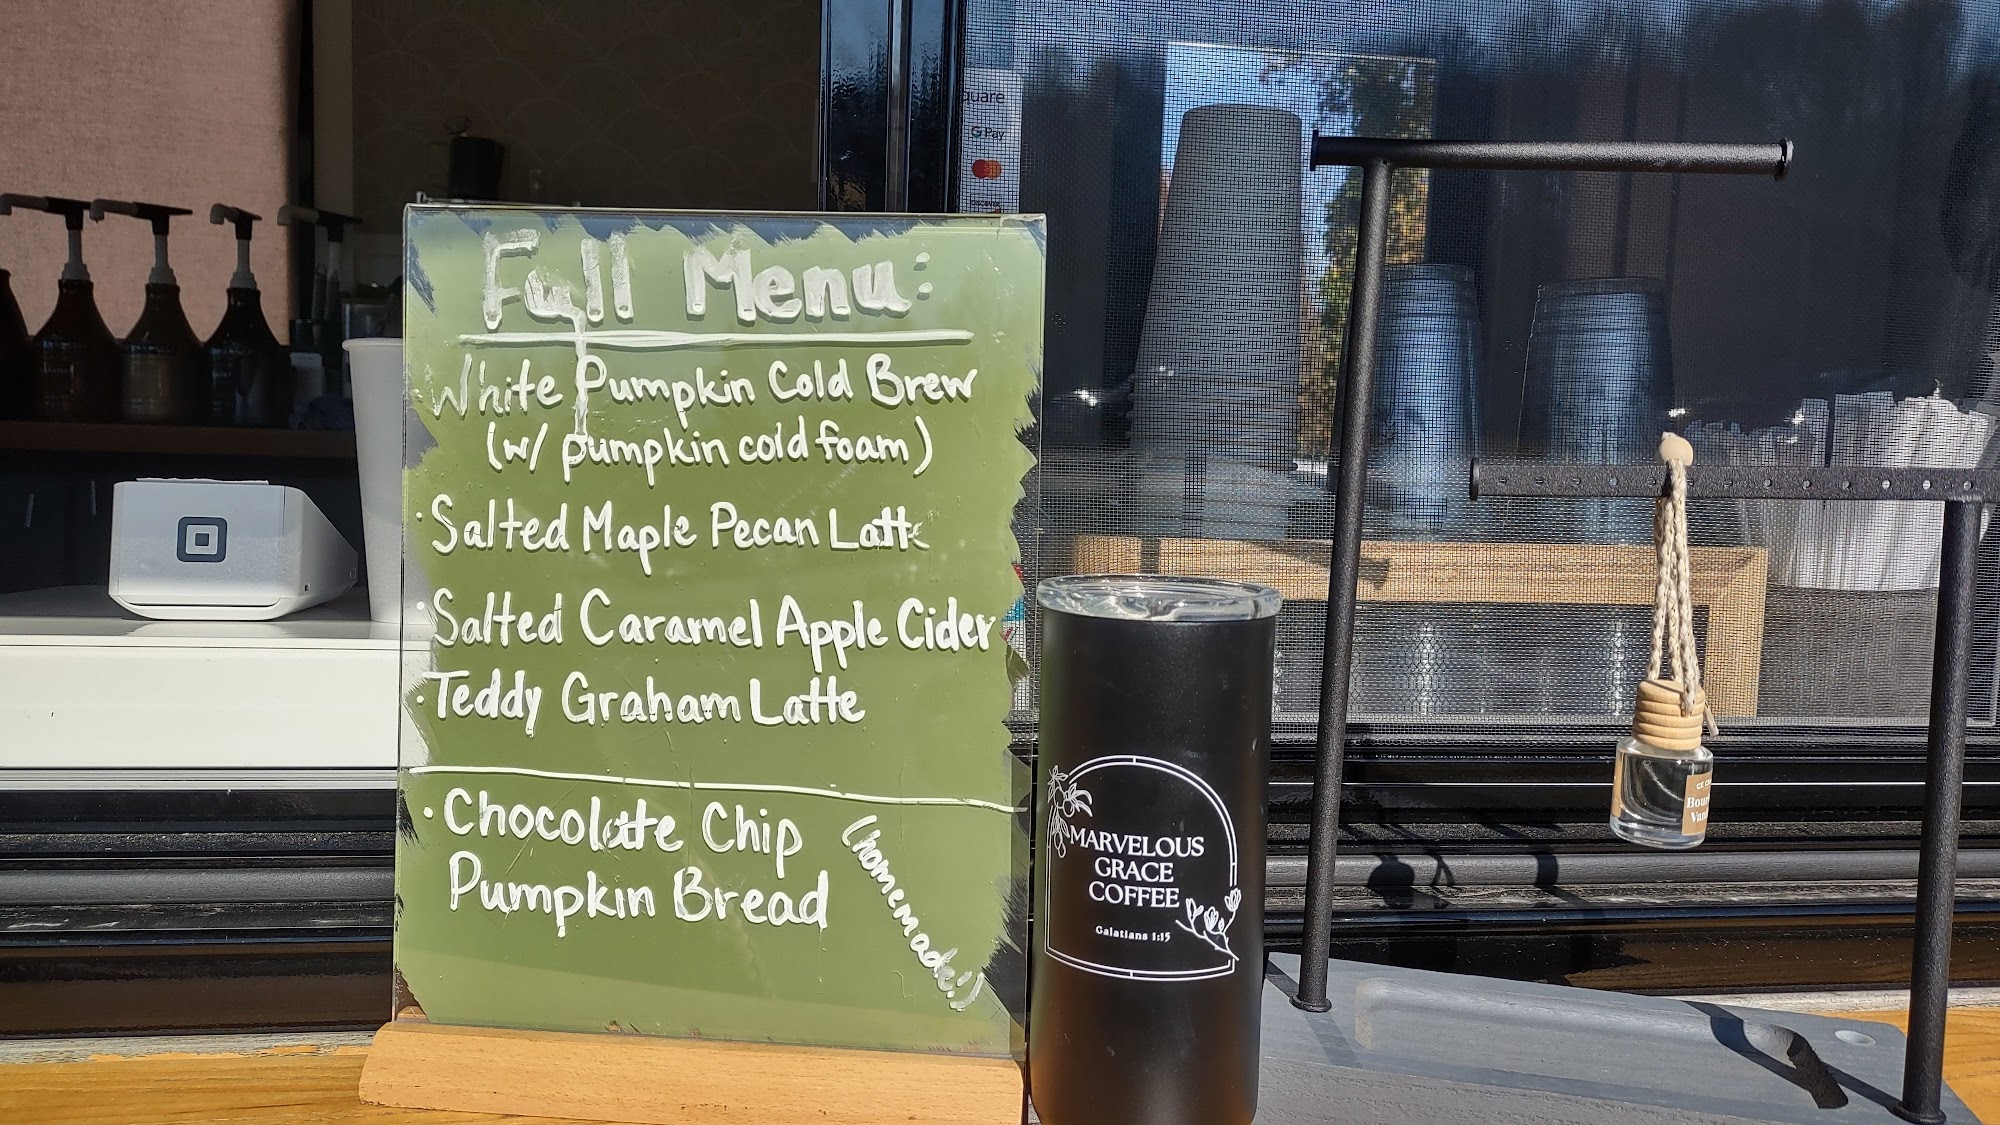 Fall Menu:
White Pumpkin Cold Brew
(w/ pumpkin cold foam)
· Salted Maple Pecan Latte
· Salted Caramel Apple Cider
· Teddy Graham Latte
· Chocolate Chip
Pumpkin Bread
(homemade!)
MARVELOUS
GRACE
COFFEE
Galatians 1:15
G Pay